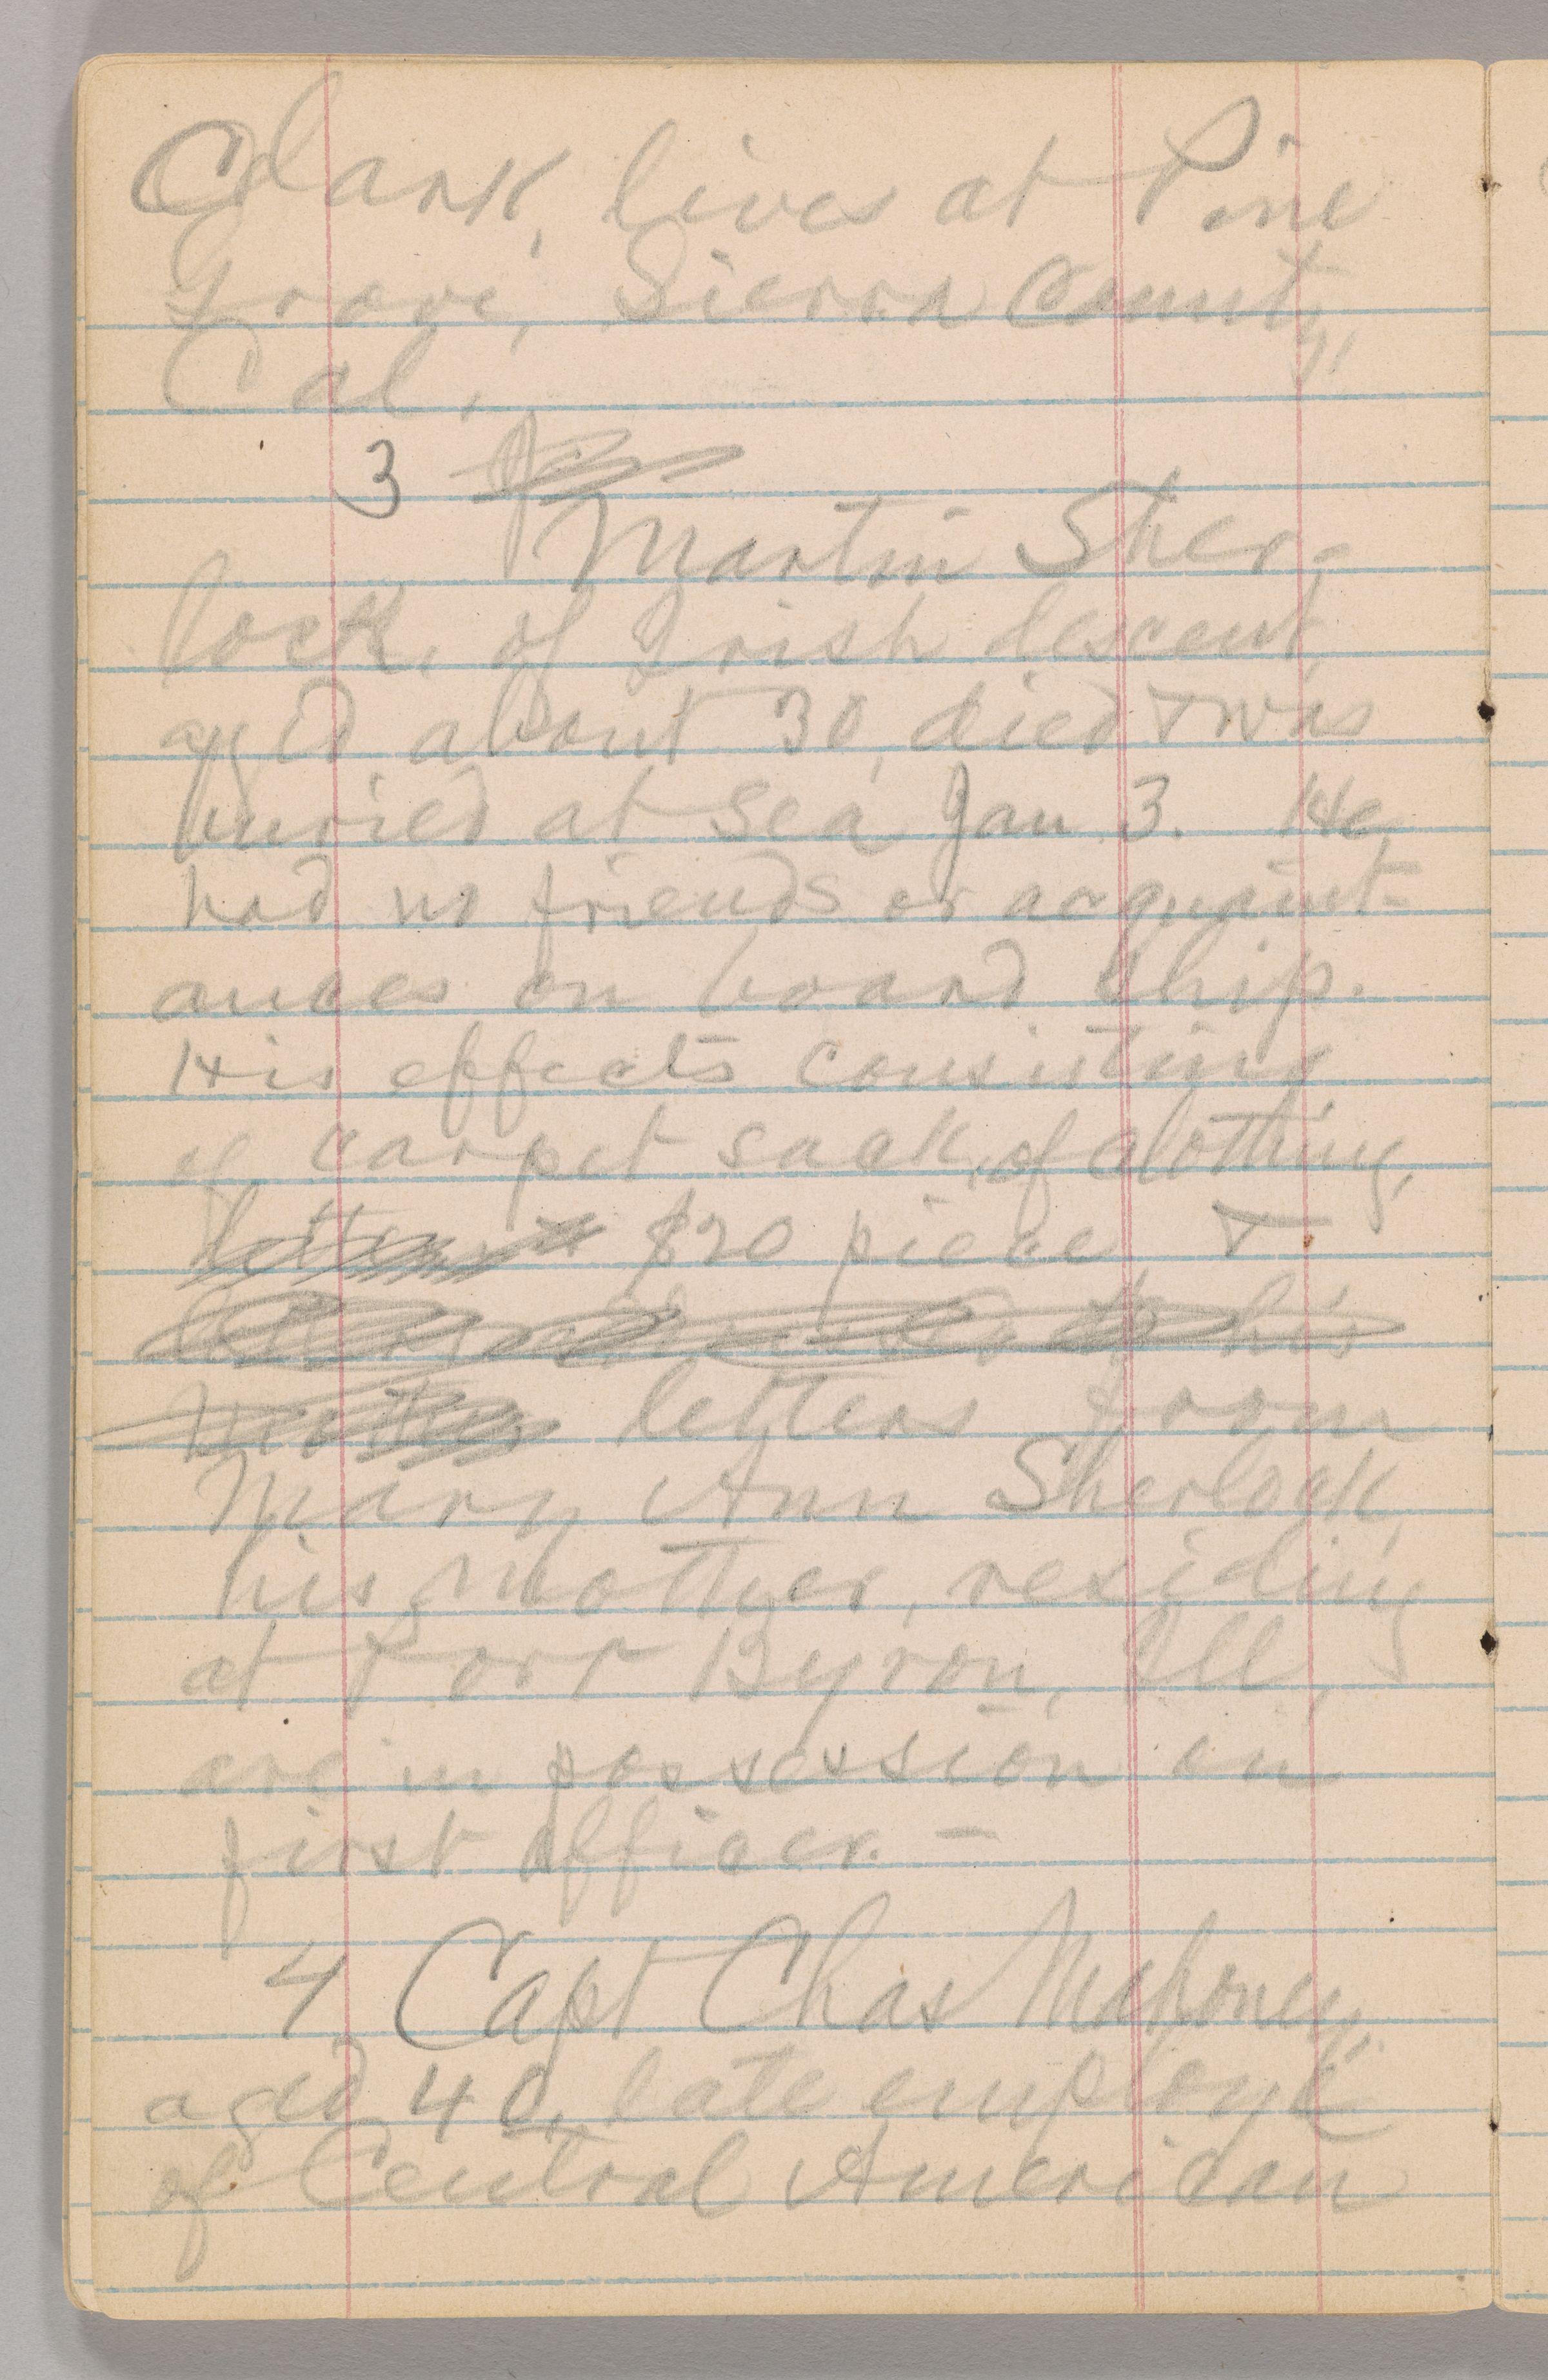 Clark, lives at Pine
Grove, Sierra County,
Cal.
3
Martin Sher-
lock, of Irish descent,
aged about 30, died & was
buried at sea Jan 3. He
had no friends or acquaint-
ances on board ship.
His effects consisting
of carpet sack, of clothing,
letters & $20 piece &
letters to his
mother letters from
Mary Ann Sherlock,
his mother, residing
at Port Byron, Ill,
are in possession on
first officer. —
4 Capt Chas Mahoney,
aged 40, late employé
of Central American